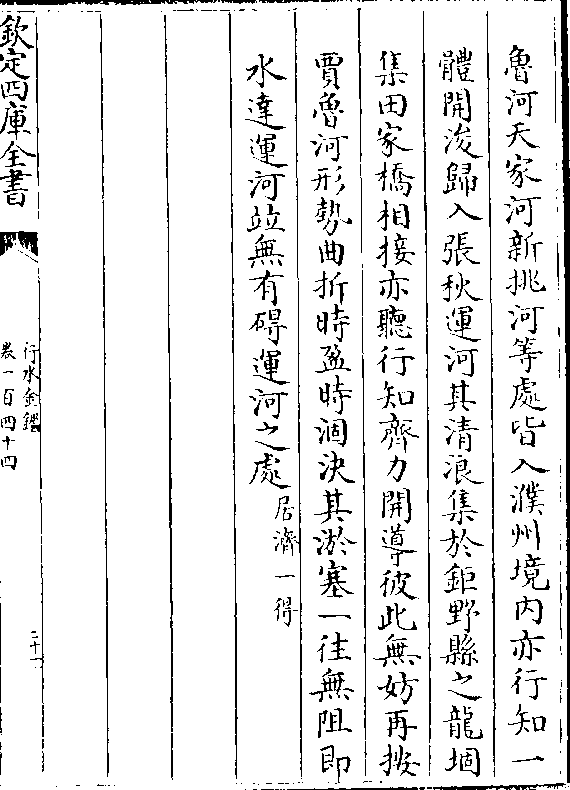 魯河天家河新挑河等處皆入濮州境内亦行知一
體開浚歸入張秋運河其清浪集於鉅野縣之龍堌
集田家橋相接亦聽行知齊力開導彼此無妨再按
賈魯河形勢曲折時盈時涸決其淤塞一徃無阻即
水達運河竝無有碍運河之處居濟一得
欽定四庫全書
行水金鑑
卷一百四十四
三十一